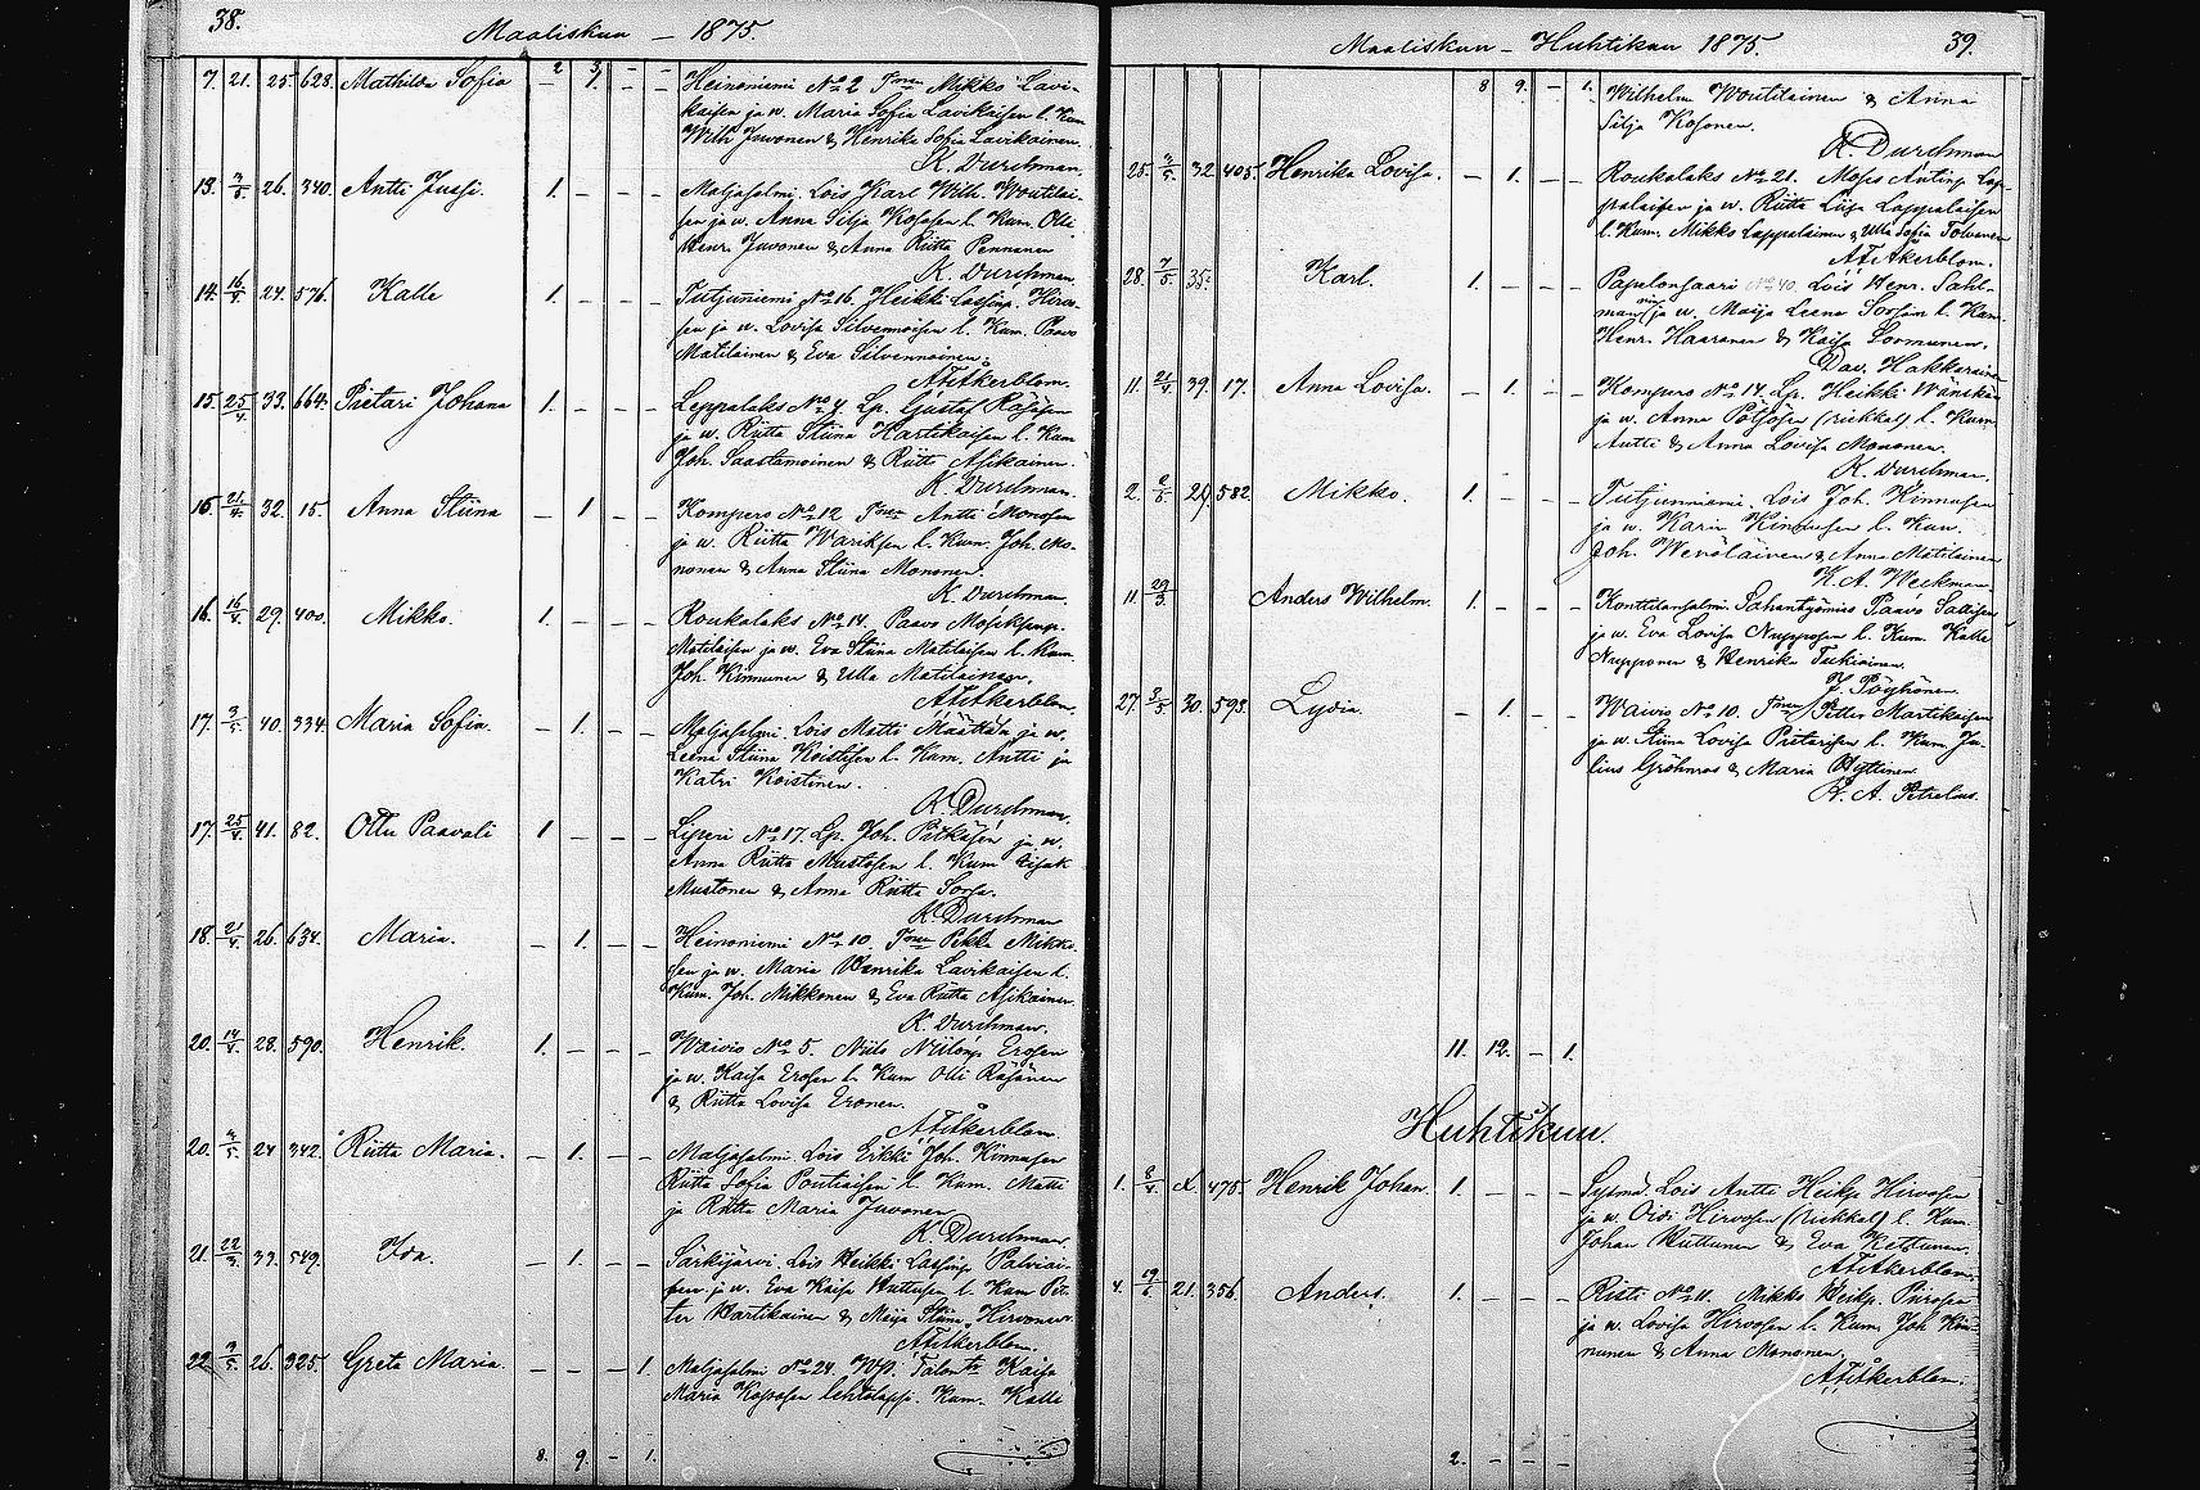 38.
Maaliskuu – 1875.
2 3 – –
7. 21. 25. 628. Mathilda Sofia – 1. – – Heinoniemi No 2 Tmen Mikko Lavi-
kaisen ja w. Maria Sofia Lavikaisen l. Kum
Wilh Juvonen & Henrika Sofia Lavikainen.
K. Durchman.
13. 3/5 26. 340. Antti Jussi. 1. – – – Maljasalmi. Lois Karl Wilh. Woutilai-
sen ja w. Anna Silja Kososen l. Kum. Olli
Henr. Juvonen & Anna Riitta Pennanen
K. Durchman.
14. 16/4 24. 576. Kalle 1. – – – Tutjunniemi No 16. Heikki Lassinp. Hirvo-
sen ja w. Lovisa Silvennoisen l. Kum. Paavo
Matilainen & Eva Silvennoinen.
A F Åkerblom.
15. 25/4 33. 664. Pietari Johana 1. – – – Leppalaks No 4. Lp. Gustaf Räsäsen
ja w. Riitta Stiina Hartikaisen l. Kum
Joh. Saastamoinen & Riitta Asikainen.
K. Durchman.
16. 21/4 32. 15. Anna Stiina – 1 – – Kompero No 12 Tmen Antti Monosen
ja w. Riitta Wariksen l. Kum. Joh. Mo-
nonen & Anna Stiina Mononen.
K Durchman.
16. 16/4 29. 400. Mikko. 1. – – – Roukalaks No 14. Paavo Mooseksenp.
Matilaisen ja w. Eva Stiina Matilaisen l. Kum.
Joh. Kinnunen & Ulla Matilainen.
A F Åkerblom.
17. 3/5 40. 334. Maria Sofia. – 1. – – Maljasalmi. Lois Matti Määttän ja w.
Leena Stiina Koistisen l. Kum. Antti ja
Katri Koistinen.
K. Durchman.
17. 25/4 41. 82. Otto Paavali 1 – – – Liperi No 17. Lp. Joh. Pitkäsen ja w.
Anna Riitta Mustosen l. Kum Eisak
Mustonen & Anna Riitta Sorsa.
K. Durchman
18. 21/4 26. 634. Maria. – 1. – – Heinoniemi No 10. Tmen Pekka Mikko-
sen ja w. Maria Henrika Lavikaisen l.
Kum. Joh. Mikkonen & Eva Riitta Asikainen.
K. Durchman.
20. 14/4 28. 590. Henrik. 1. – – – Waivio No 5. Niilo Niilonp Erosen
ja w. Kaisa Erosen l. Kum Olli Räsänen
& Riitta Lovisa Eronen.
A F Åkerblom
20. 3/5 24 342. Riitta Maria. – 1. – – Maljasalmi. Lois Erkki Joh. Kinnusen
Riitta Sofia Pontiaisen l. Kum. Matti
ja Riitta Maria Juvonen
K. Durchman.
21. 22/3 33. 549. Ida. – 1. – – Särkijärvi. Lois Heikki Lassinp Palviai-
sen ja w. Eva Kaisa Huttusen l. Kum Pet-
ter Hartikainen & Maija Stiina Hirvonen.
A F Åkerblom.
22 3/5 26. 325. Greta Maria. – – – 1. Maljasalmi No 24. Talon tr Kaisa
Maria Kososen lehtolapsi. Kum. Kalle
8. 9. – 1.
Maaliskuu – Huhtikuu 1875. 39.
8 9. – 1. Wilhelm Woutilainen & Anna
Silja Kosonen.
K. Durchman
25. 3/5 32 405. Henrika Lovisa. – 1. – – Roukalaks No 21. Moses Antinp Lap-
palaisen ja w. Riitta Liisa Lappalaisen
l. Kum. Mikko Lappalainen & Ulla Sofia Tolvanen
A F Åkerblom.
28. 7/5 35. Karl. 1. – – – Papelonsaari No 40. Lois Henr. Sahl-
man ja w. Maija Leena Sorsan l. Kum.
Henr. Haaranen & Kaisa Sormunen.
Dav. Hakkarainen
11. 21/4 39. 17. Anna Lovisa. – 1. – – Kompero No 14. Lp. Heikki Wänskän
ja w. Anna Pötsösen (rickkal) l. Kum.
Antti & Anna Lovisa Mononen.
K. Durchman.
2. 24. 582. Mikko. 1. – – – Tutjunniemi. Lois Joh. Kinnusen
ja w. Karin Kinnusen l. Kum.
Joh. Wenäläinen & Anna Matilainen
K. A. Weckman
11. 29/3. Anders Wilhelm. 1. – – – Konttilansalmi. Sahantyömies Paavo Sallisen
ja w. Eva Lovisa Nupposen l. Kum. Kalle
Nupponen & Henrika Tukiainen.
J. Pöyhönen.
27. 3/5. 30. 593. Lydia. – 1. – – Waivio No 10. Tmen Petter Martikaisen
ja w. Stiina Lovisa Pietarisen l. Kum. Ju-
lius Gröhnros & Maria Hyttinen.
K. A. Petrelius.
11. 12. – 1.
Huhtikuu.
1. 8/4. 475. Henrik Johan. 1. – – – Sysmä. Lois Antti Heikp Hirvosen
ja w. Hirvosen (rickkal) l. Kum.
Johan Huttunen & Eva Kettunen.
A F Åkerblom.
4. 19/6 21. 356. Anders. 1. – – – Risti No 11. Mikko Heikp. Piirosen
ja w. Lovisa Hirvosen l. Kum. Joh Kin-
nunen & Anna Mononen.
A F Åkerblom.
2. – – –